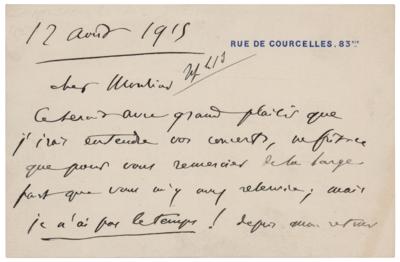 12 août 1915
RUE DE COURCELLES. 83 BIS
cher Monsieur
Ce serait avec grand plaisir que
j'irais entendre vos concerts, ne fût-ce
que pour vous remercier de la large
part que vous m'y avez réservée; mais
je n'ai pas le temps! depuis mon retour